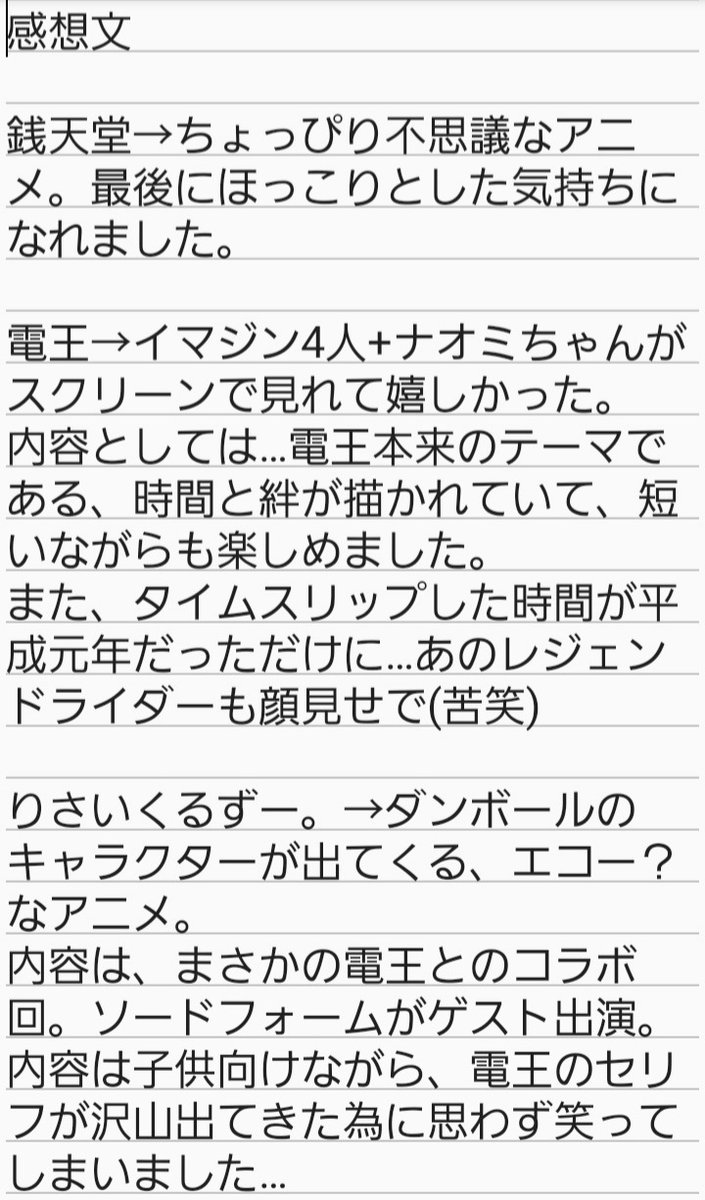 感想文
銭天堂→ちょっぴり不思議なアニ
メ。最後にほっこりとした気持ちに
なれました。
電王→イマジン4人+ナオミちゃんが
スクリーンで見れて嬉しかった。
内容としては...電王本来のテーマで
ある、時間と絆が描かれていて、短
いながらも楽しめました。
また、タイムスリップした時間が平
成元年だっただけに...あのレジェン
ドライダーも顔見せで(苦笑)
りさいくるずー。→ダンボールの
キャラクターが出てくる、エコー？
なアニメ。
内容は、まさかの電王とのコラボ
回。ソードフォームがゲスト出演。
内容は子供向けながら、電王のセリ
フが沢山出てきた為に思わず笑って
しまいました...